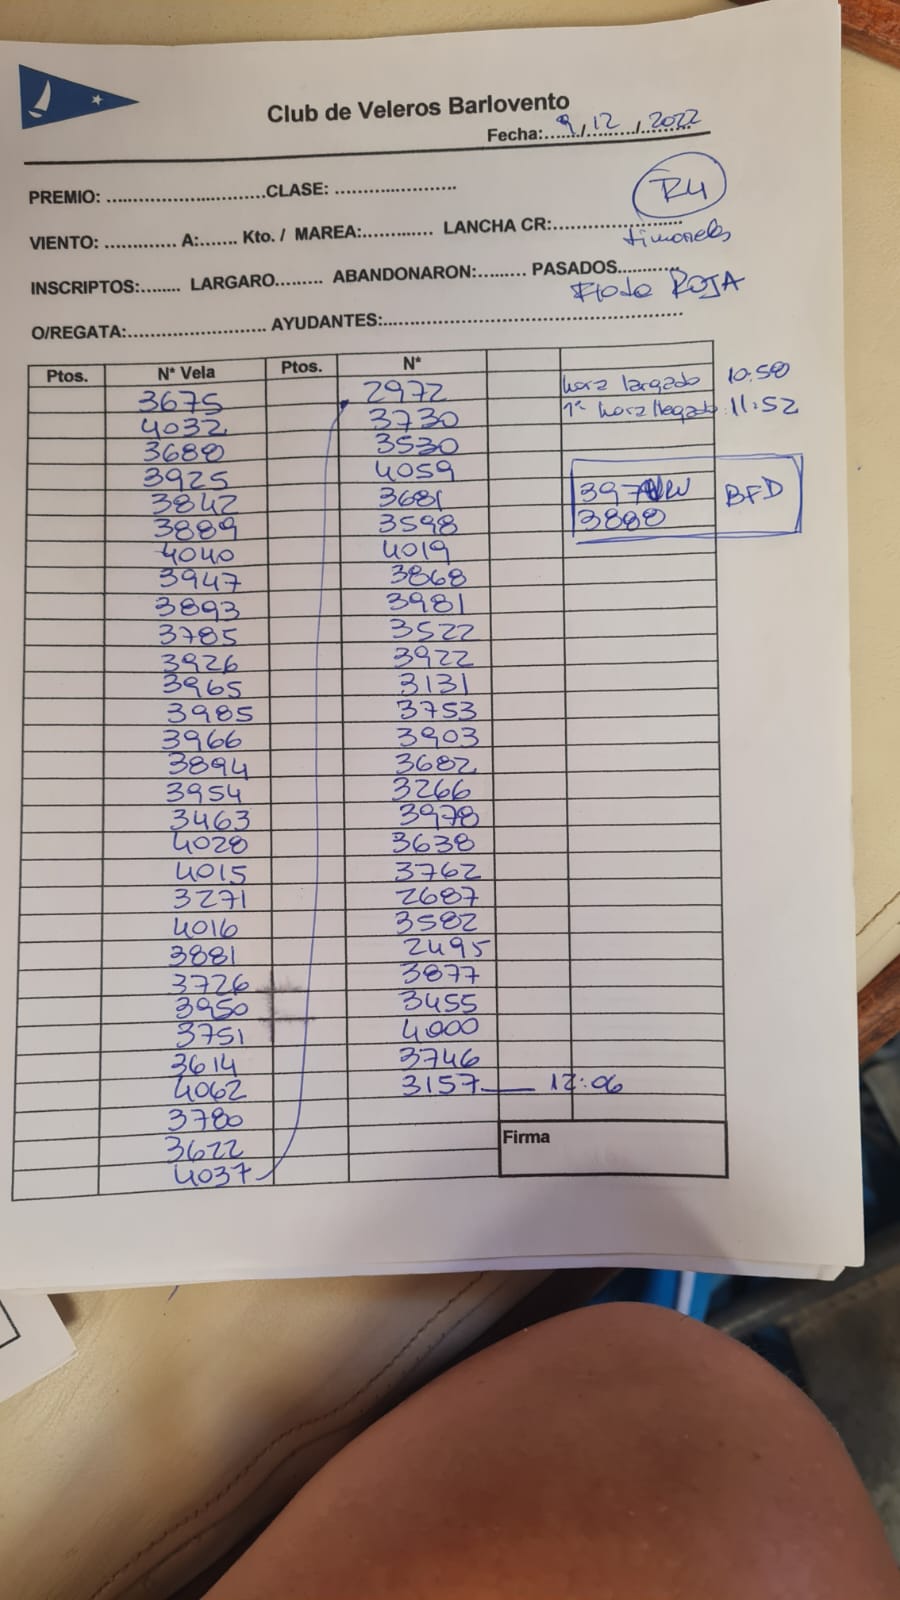 Club de Veleros Barlovento
Fecha: 9/12/2022
PREMIO: ........................CLASE: ........................
R4
VIENTO: ............. A:....... Kto. / MAREA:............. LANCHA CR:........................
timoneles
INSCRIPTOS:........ LARGARO......... ABANDONARON:......... PASADOS............
Flota ROJA
O/REGATA:........................... AYUDANTES:............................................................
Ptos. N* Vela Ptos. N*
3675 2972 hora largada 10:58
4032 3730 1ª hora llegada 11:52
3688 3530
3925 4059
3842 3681 BFD
3889 3598 3888
4040 4019
3947 3868
3893 3981
3785 3522
3926 3922
3965 3131
3985 3753
3966 3903
3894 3682
3954 3266
3463 3978
4028 3638
4015 3762
3271 2687
4016 3582
3881 2495
3726 3877
3950 3455
3751 4000
3614 3746
4062 3157 12:06
3780
3622 Firma
4037